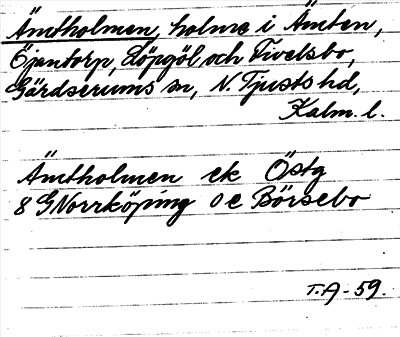 Ämtholmen, holme i Ämten,
Öjantorp, Löpgöl och Tivelsbo,
Gärdserums sn, N. Tjusts hd,
Kalm. l.
Ämtholmen ek Östg
8 G Norrköping 0 e Börsebo
T.A-59.